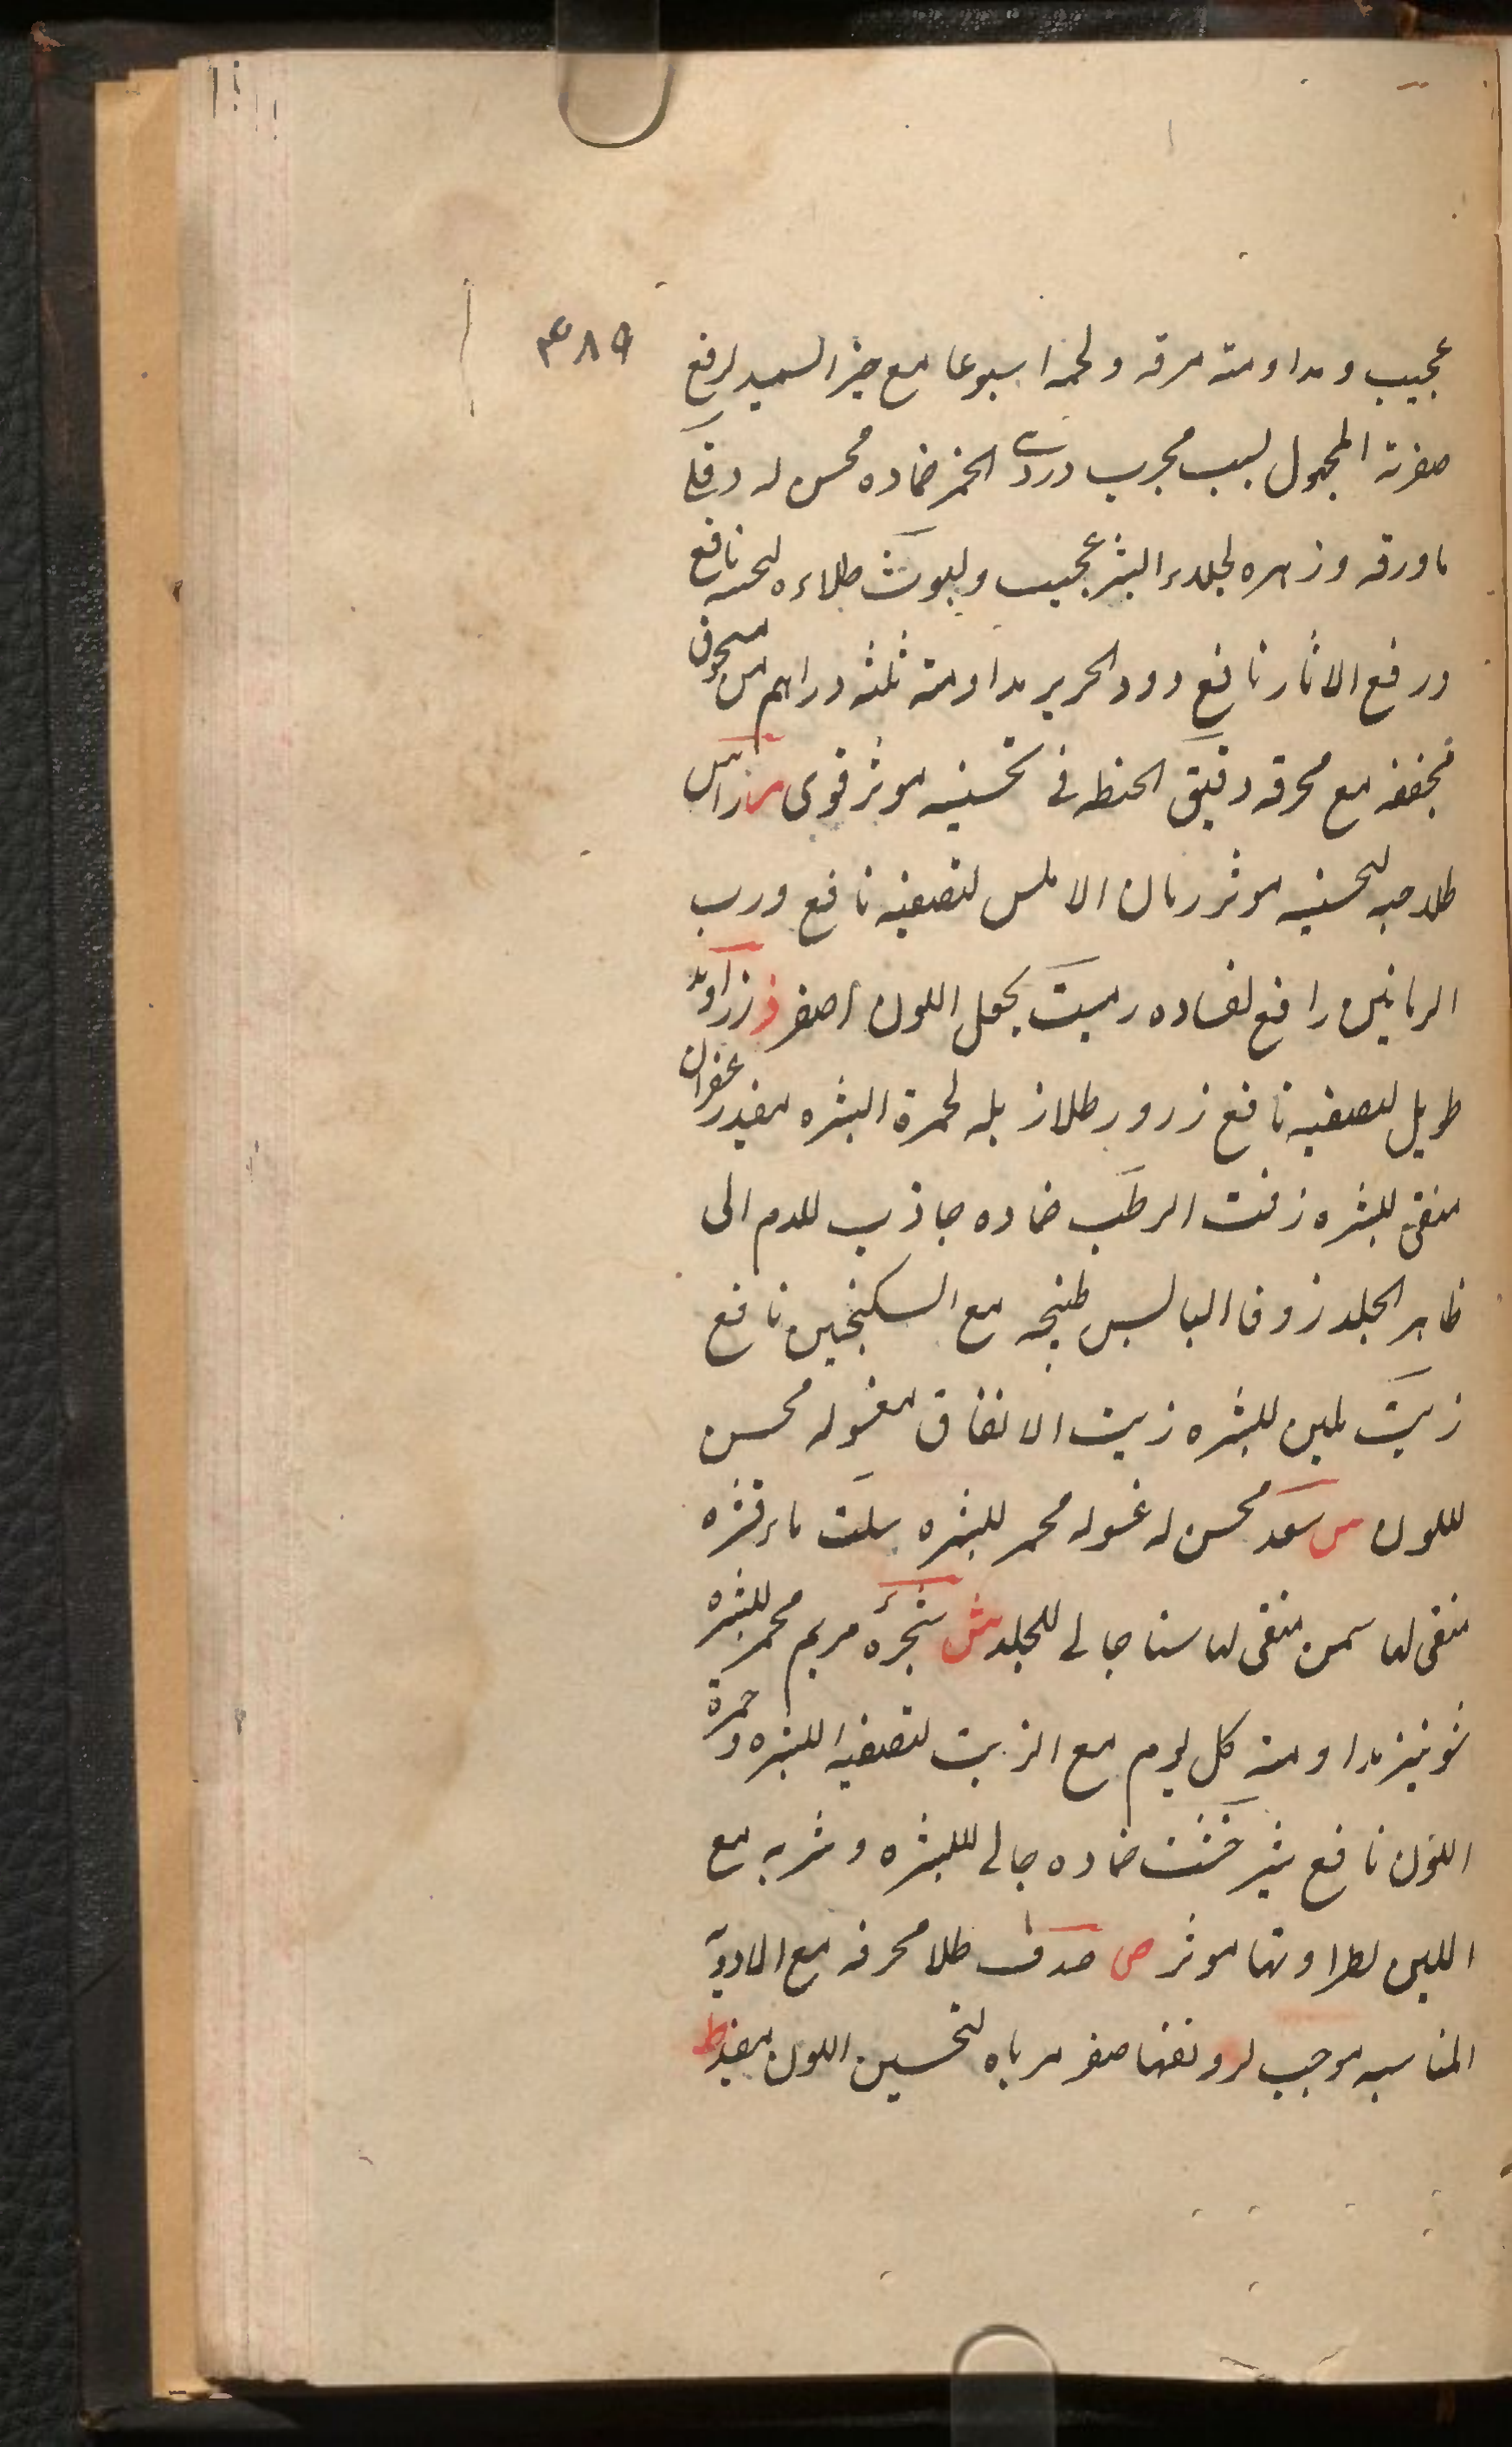 ٣٨٩
عجيب ومداومته مرقه ولحمه اسبوعا مع خبز السميد لرفع
صفرته المجهول لسبب مجرب دردى الخمر ضماده محسن له دفلى
ماورقه وزهره لجلاء البشر عجيب طلاءه نافع
ورفع الاثار نافع دود الحرير مداومته ثلثه دراهم من مسحوق
مجففه مع محرقه دقيق الحنطه فى تحسينه موثر قوى ر راس
طلا حبه لتحسينه موثر رمان الاملس لتصفيه نافع ورب
الرمانين رافع لفساده يجعل اللون اصفر ز زراوند
طويل لتصفيه نافع زرور طلا زبله لحمرة البشره مفيد زعفران
منقى للبشره زفت الرطب ضماده جاذب للدم الى
ظاهر الجلد زوفا اليابس طبيخه مع السكنجبين نافع
زيت ملين للبشره زيت الانفاق مغسوله محسن
لللون س سعد محسن له غسوله محمر للبشره سلت ماء قشره
منقى لها سمن منقى لها سنا جالى للجلد ش شجرة مريم محمر للبشره
شونيز مداومته كل يوم مع الزيت لتصفيه البشره وحمرة
اللون نافع شيرخشت ضماده جالى للبشره وشربه مع
اللبن لطراوتها موثر ص صدف طلا محرقه مع الادويه
المناسبه موجب لرونقها صفر مرباه لتحسين اللون مفيد ط